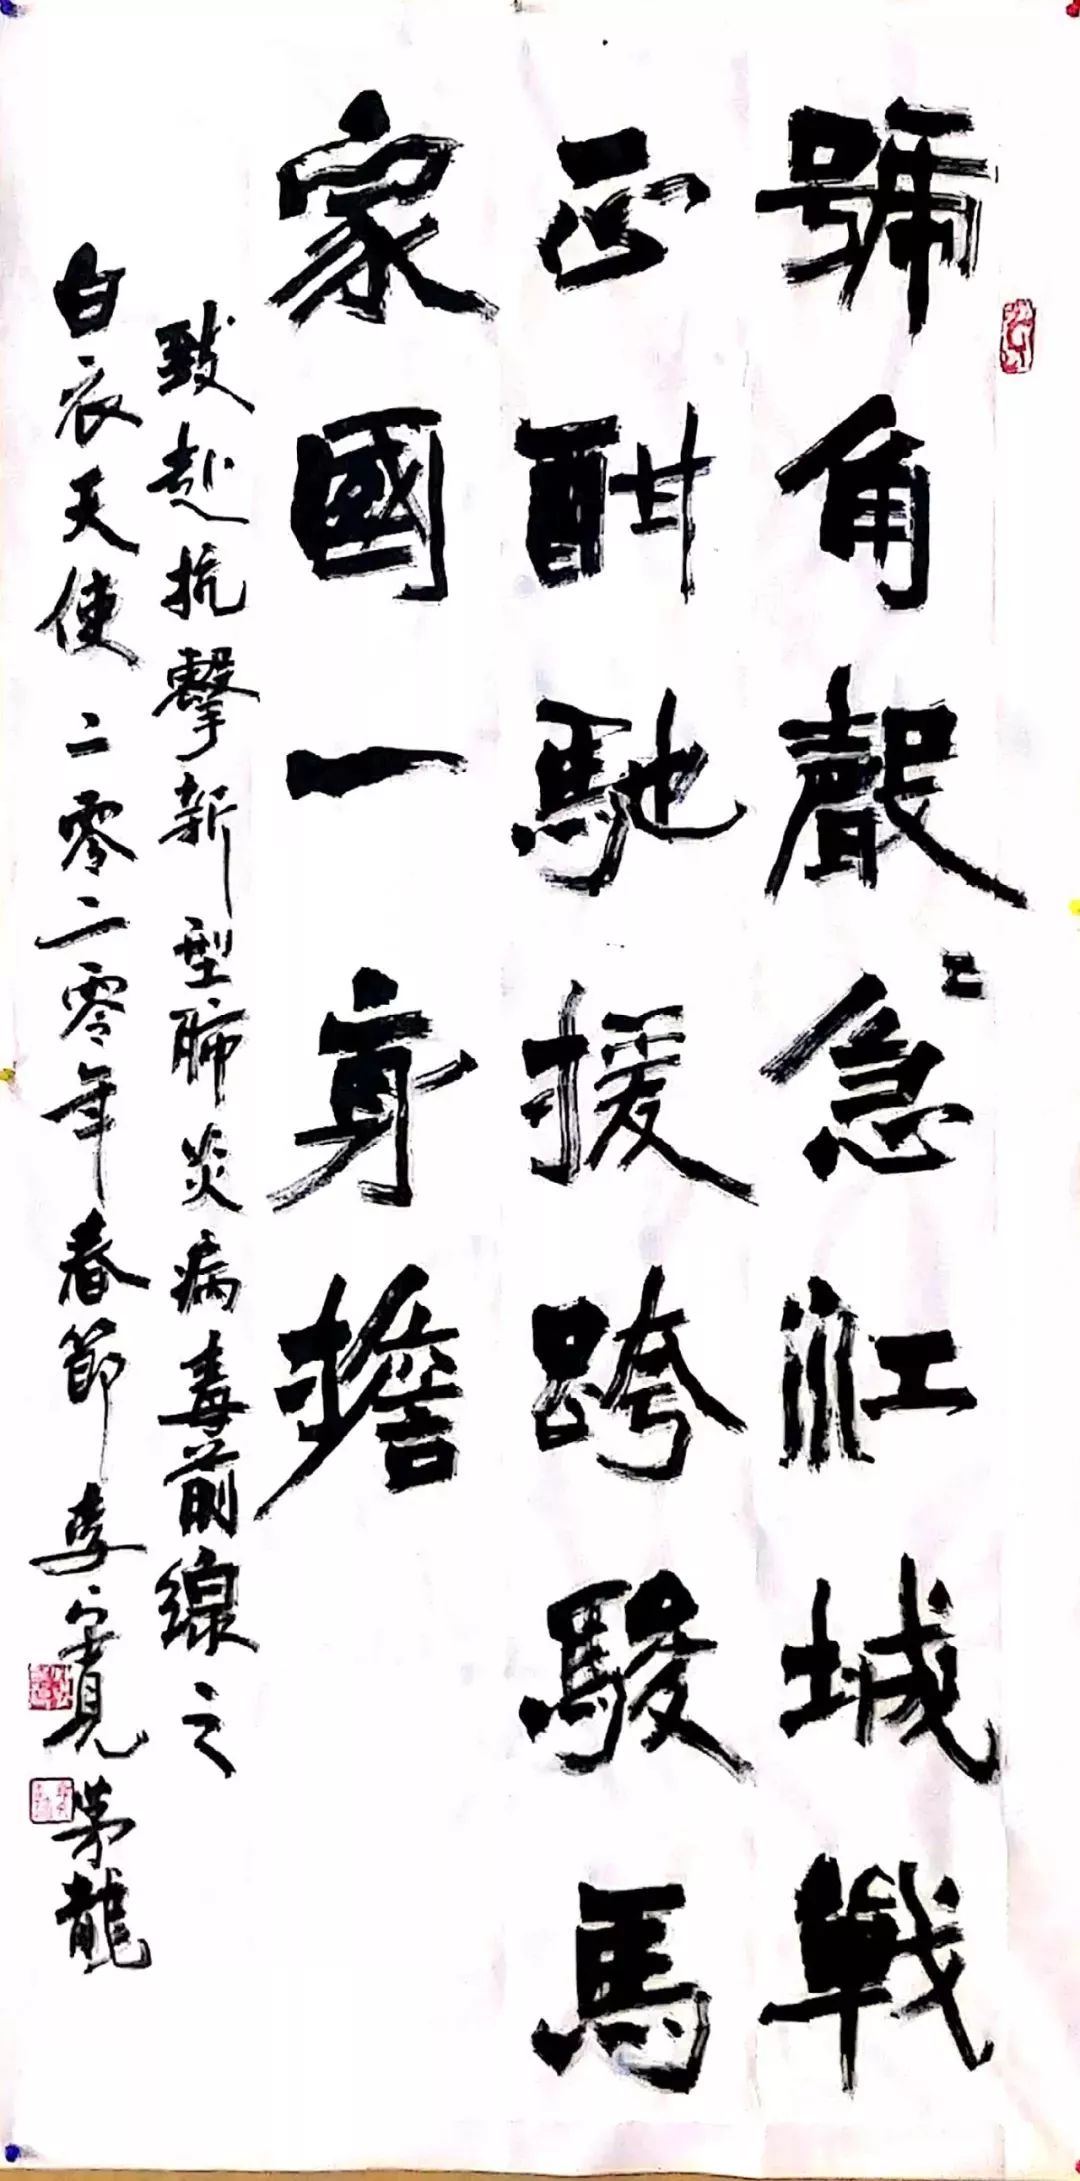 號角聲〻急江城戰
正酣馳援跨駿馬
家國一身擔
致赴抗擊新型肺炎病毒前線之
白衣天使 二零二零年春節 李寬茅龍